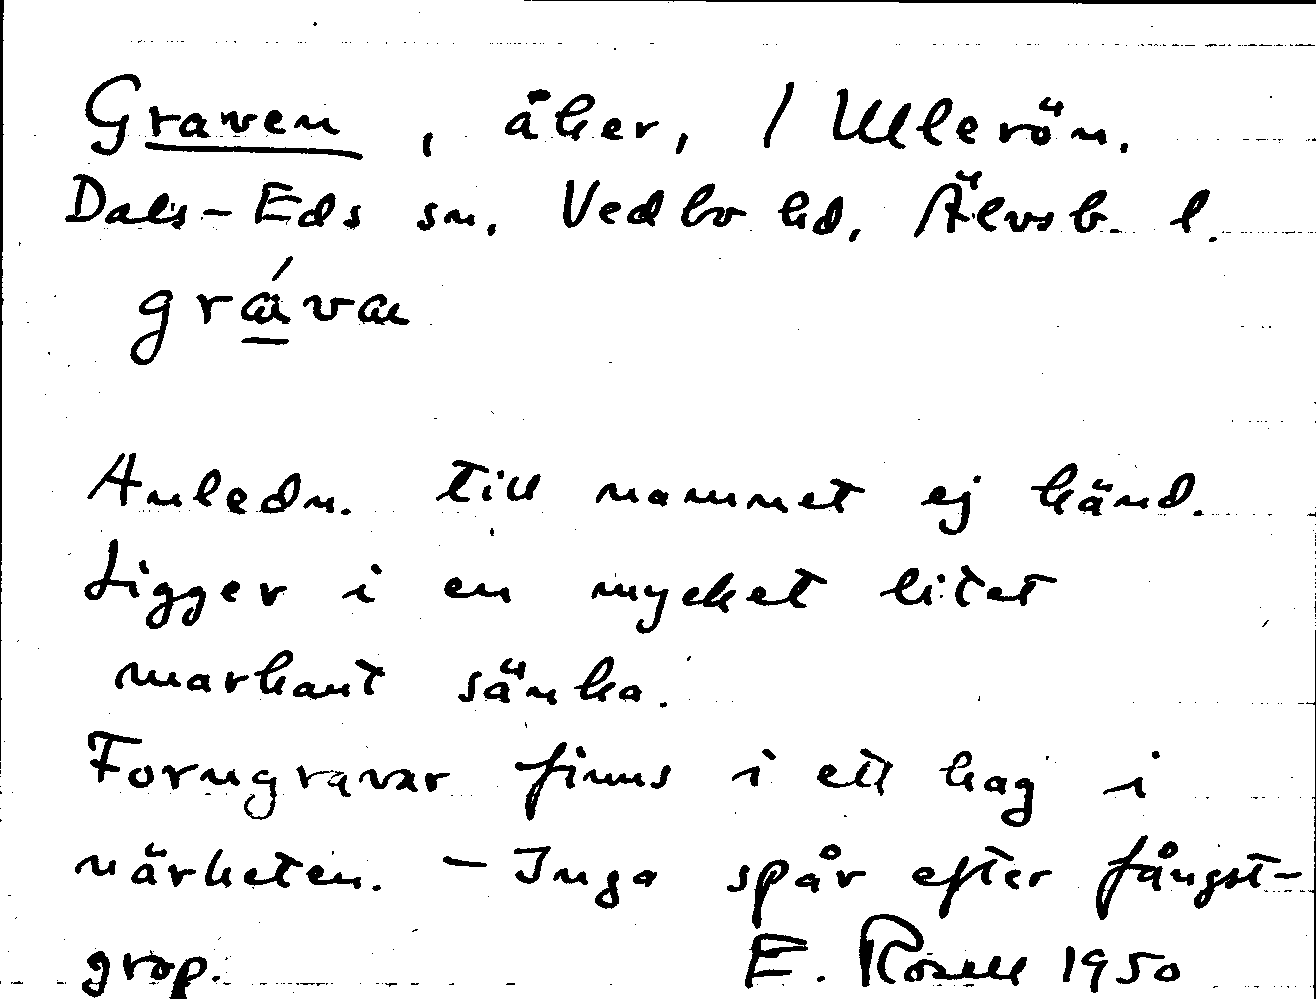 Graven, åker, / Ullerön.
Dals-Eds sn. Vedbo hd. Älvsb. l.
gráva
Anledn. till namnet ej känd.
Ligger i en mycket litet
markant sänka.
Forngravar finns i ett hag i
närheten. - Inga spår efter fångst-
grop. E. Rosell 1950